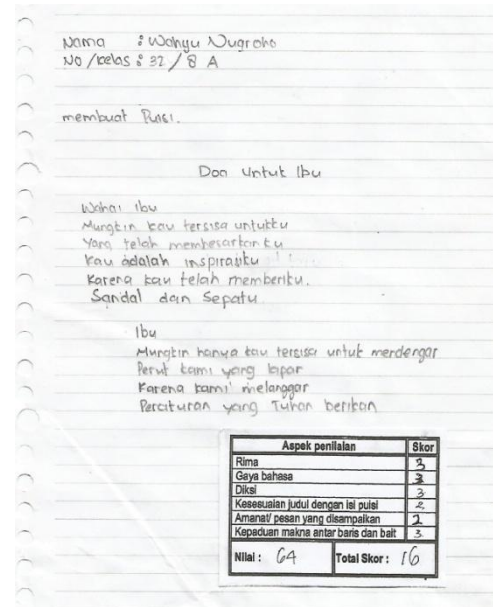 Nama : Wahyu Nugroho
No / kelas : 32 / 8 A
membuat Puisi.
Doa Untuk Ibu
Wahai Ibu
Mungkin kau tersisa untukku
Yang telah membesarkanku
Kau adalah inspirasiku
Karena kau telah memberiku.
Sandal dan Sepatu
Ibu
Mungkin hanya kau tersisa untuk mendengar
Perut kami yang lapar
Karena kami melanggar
Peraturan yang Tuhan berikan
Aspek penilaian Skor
Rima 3
Gaya bahasa 3
Diksi 3
Kesesuaian judul dengan isi puisi 2
Amanat/ pesan yang disampaikan 2
Kepaduan makna antar baris dan bait 3
Nilai : 64 Total Skor : 16